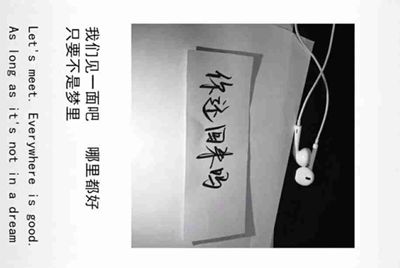 你还回来吗
我们见一面吧 哪里都好
只要不是梦里
Let's meet. Everywhere is good.
As long as it's not in a dream